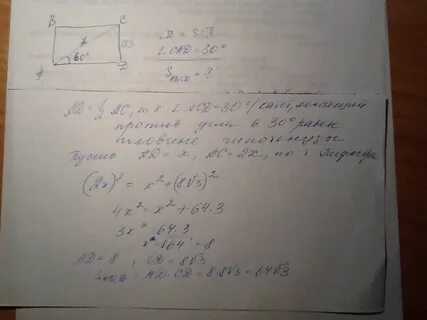 B C
8√3
60°
A D
AB = 8√3
∠CAD = 60°
S_ABCD = ?
AD = ½ AC, т.к ∠ACD = 30° (катет, лежащий
против угла в 30° равен
половине гипотенузы
Пусть AD = x, AC = 2x, по т Пифагора
(2x)² = x² + (8√3)²
4x² = x² + 64·3
3x² = 64·3
x = √64 = 8
AD = 8, CD = 8√3
S_ABCD = AD·CD = 8·8√3 = 64√3